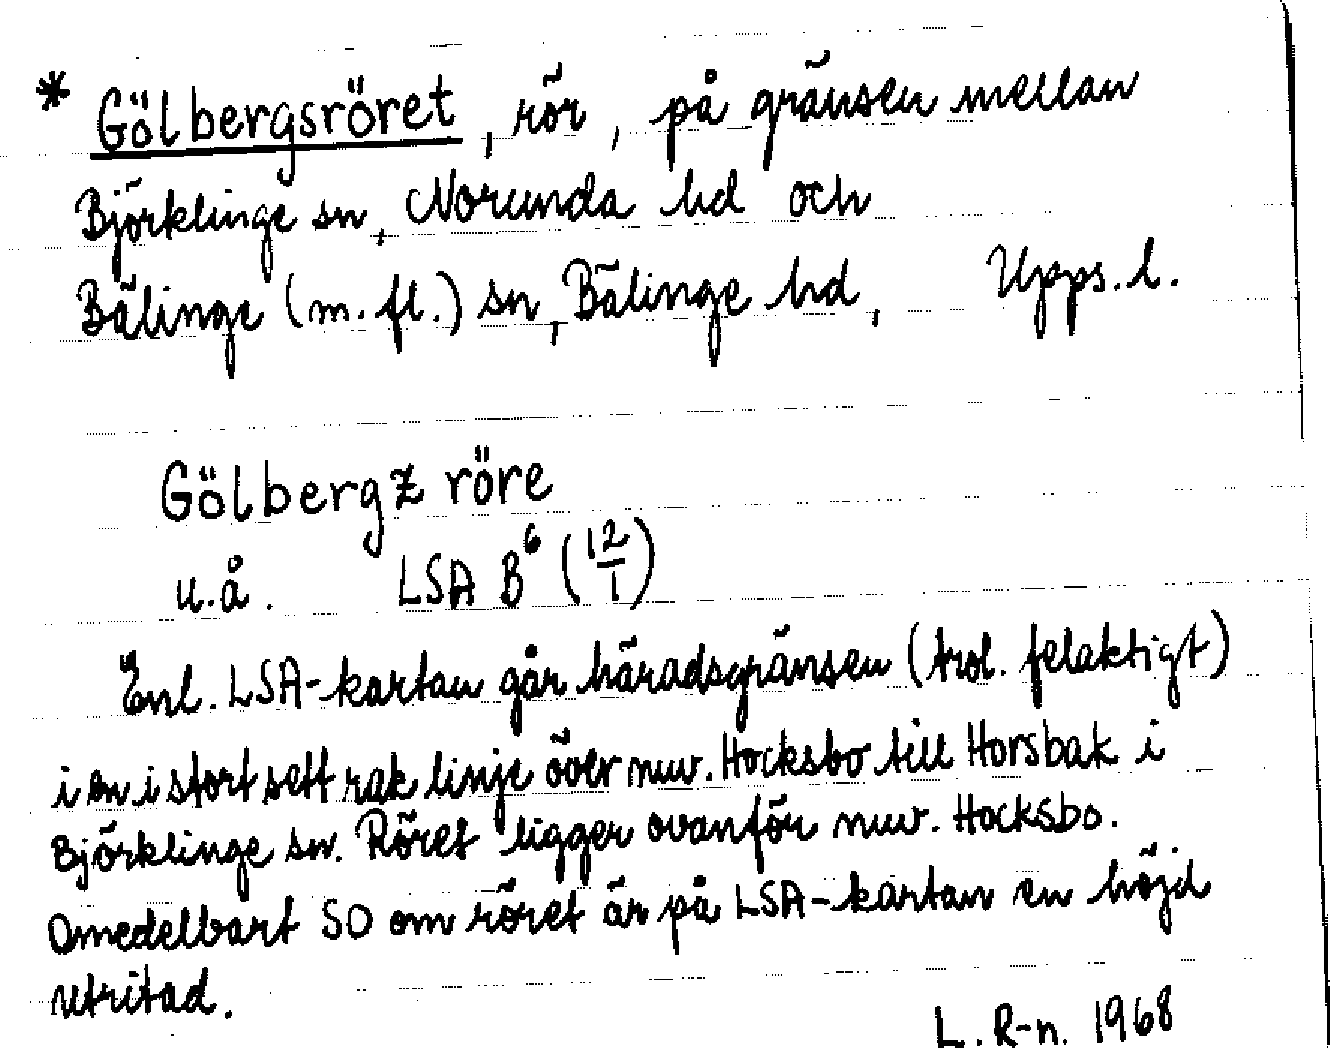 * Gölbergsröret, rör, på gränsen mellan
Björklinge sn, Norunda hd och
Bälinge (m. fl.) sn, Bälinge hd, Upps. l.
Gölbergz röre
u.å. LSA B⁶ (12/1)
Enl. LSA-kartan går häradsgränsen (trol. felaktigt)
i en i stort sett rak linje över nuv. Hocksbo till Horsbak i
Björklinge sn. Röret ligger ovanför nuv. Hocksbo.
Omedelbart SO om röret är på LSA-kartan en höjd
utritad.
L. R-n. 1968